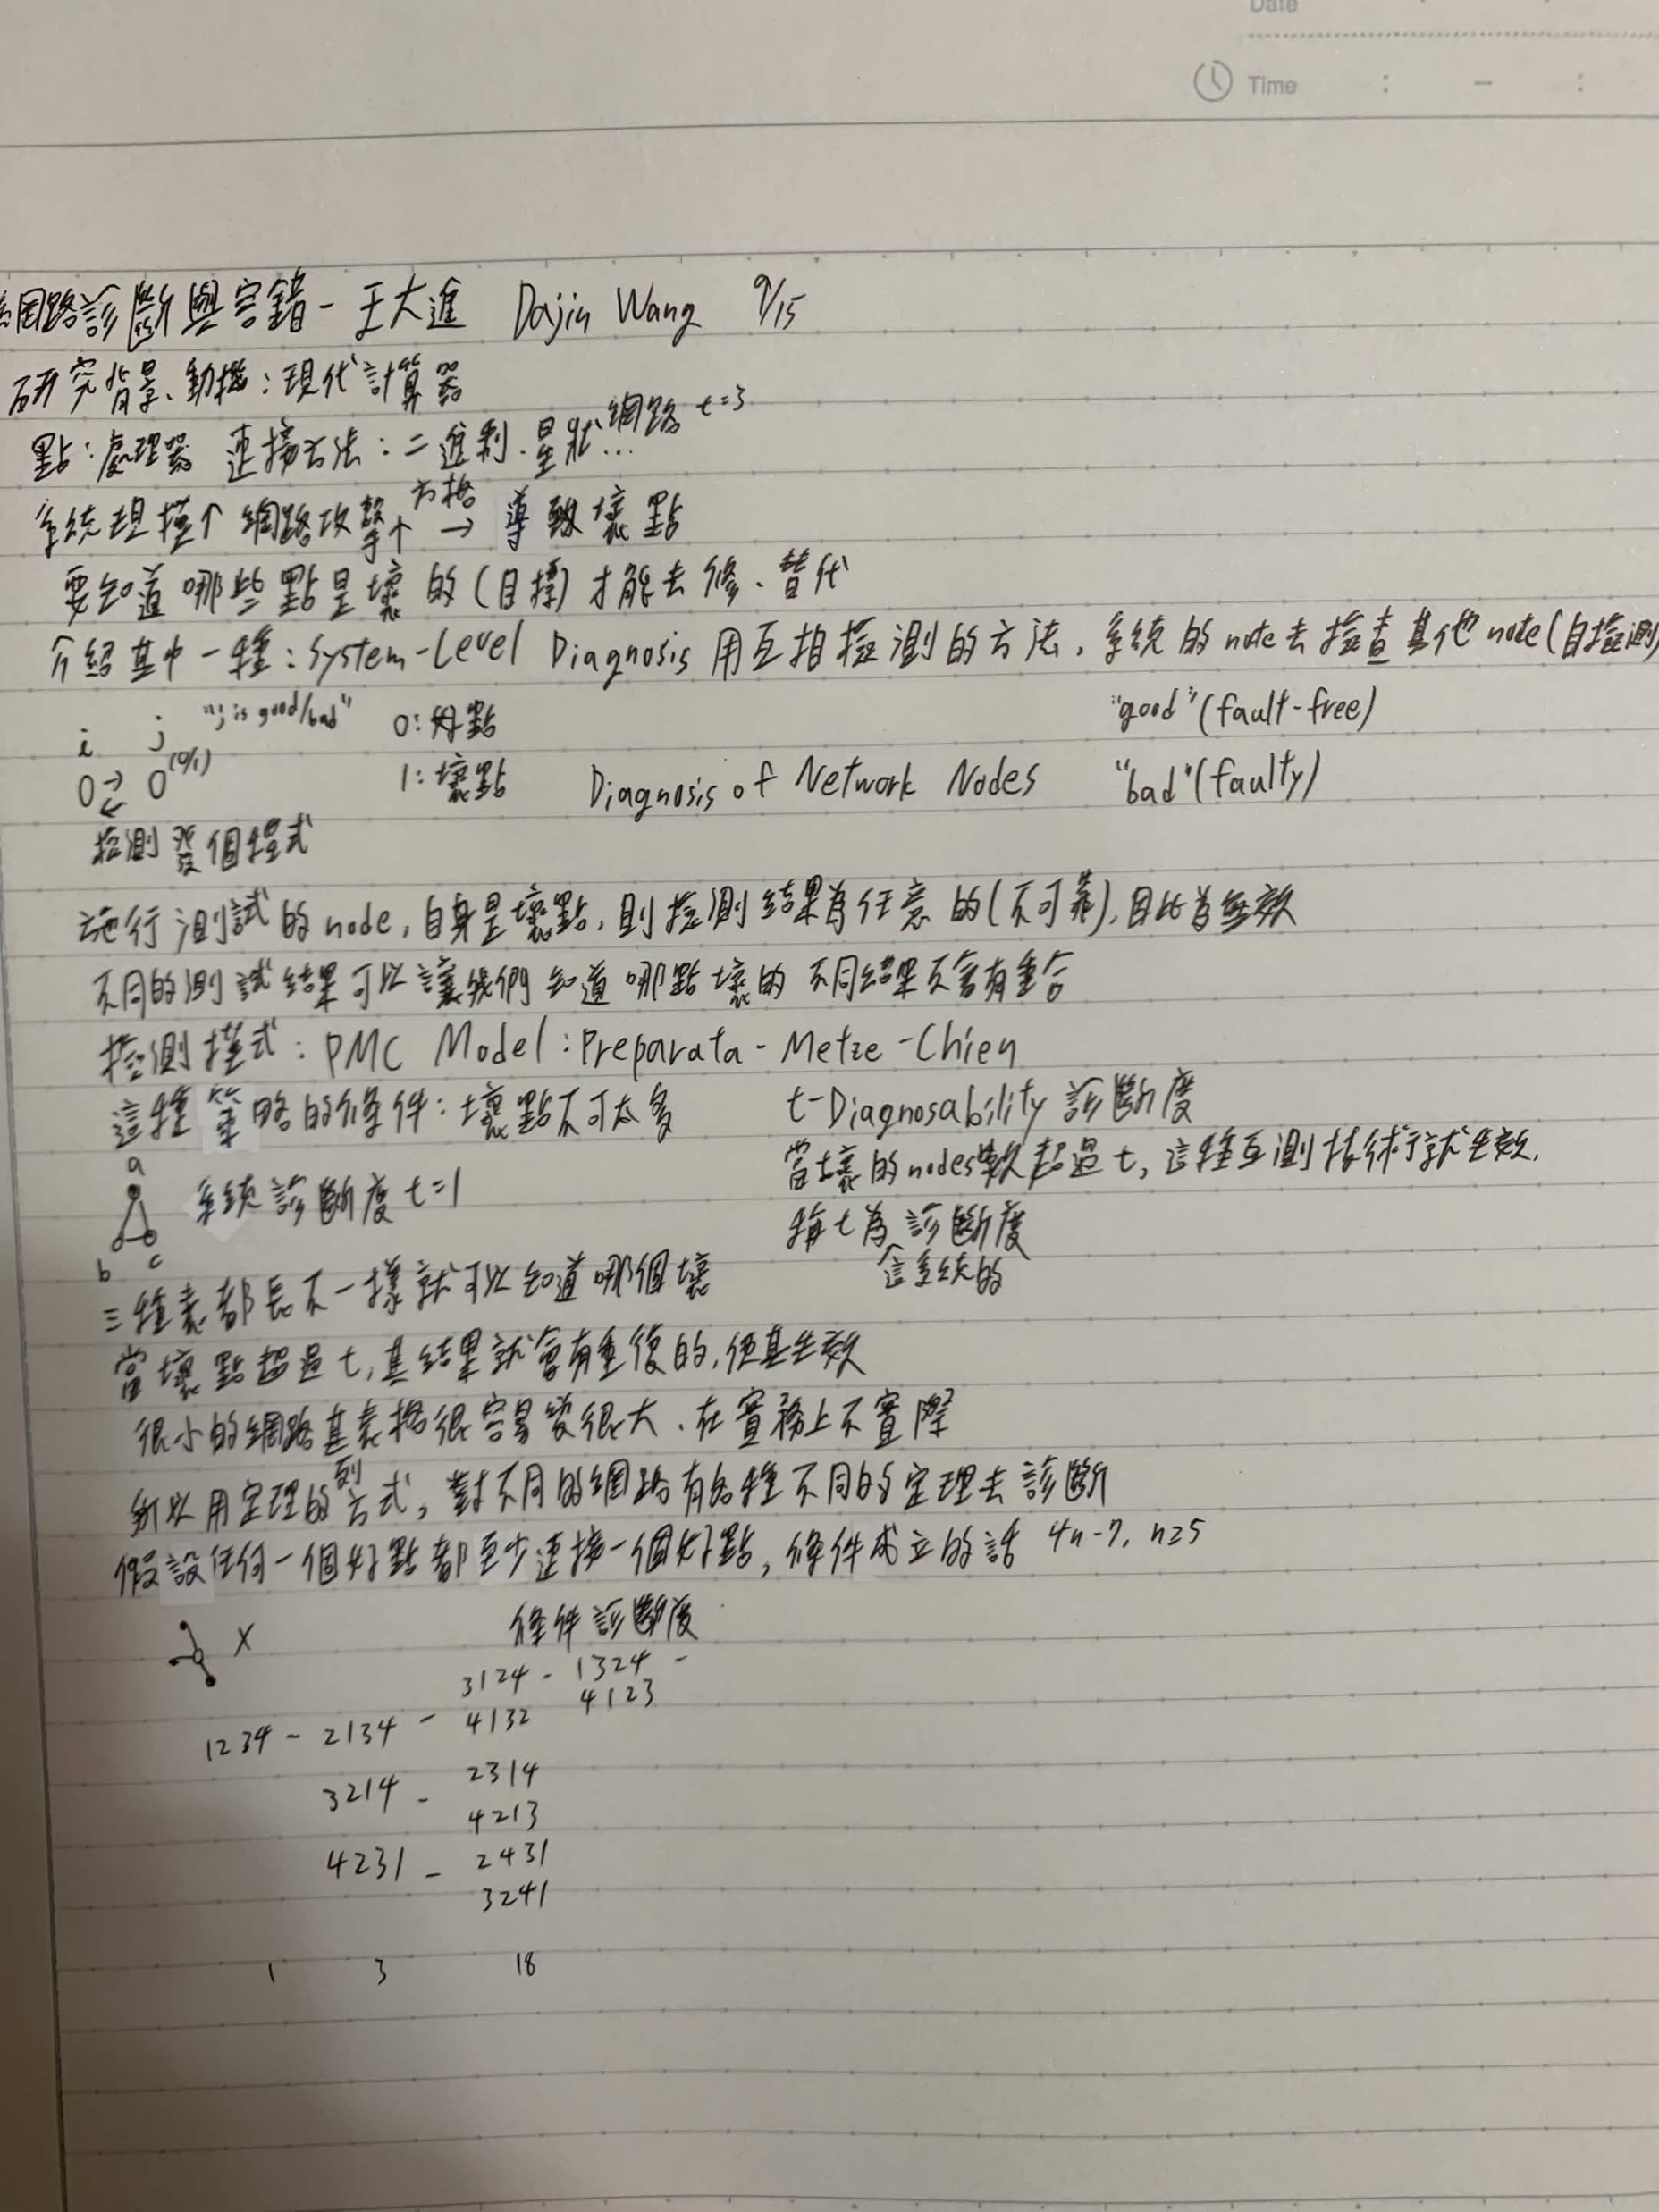 Date
Time : - :
網路診斷與容錯-王大進 Dajin Wang 9/15
研究背景、動機:現代計算器
點:處理器 連接方法:二進制、星狀網路... t=3
系統規模↑ 網路攻擊↑ 方格 → 導致壞點
要知道哪些點是壞的(目標)才能去修、替代
介紹其中一種:System-Level Diagnosis 用互相檢測的方法,系統的node去檢查其他node(自檢測)
i j "j is good/bad" 0:好點 "good"(fault-free)
0 → 0 (0/1) 1:壞點 Diagnosis of Network Nodes "bad"(faulty)
檢測發個程式
施行測試的node,自身是壞點,則檢測結果為任意的(不可靠),因此為無效
不同的測試結果可以讓我們知道哪點壞的 不同結果不會有重合
檢測模式:PMC Model:Preparata-Metze-Chien
這種策略的條件:壞點不可太多 t-Diagnosability 診斷度
當壞的nodes數超過t,這種互測技術就失效.
a
系統診斷度 t=1
稱t為診斷度
b c
這系統的
三種表都長不一樣就可以知道哪個壞
當壞點超過t,其結果就會有重復的,使其失效
很小的網路其表格很容易變很大、在實務上不實際
所以用定理的方式,對不同的網路有各種不同的定理去診斷
假設任何一個好點都至少連接一個好點,條件成立的話 4n-7, n≥5
X 條件診斷度
3124 - 1324 -
4123
1234 - 2134 - 4132
3214 - 2314
4213
4231 - 2431
3241
1 3 18